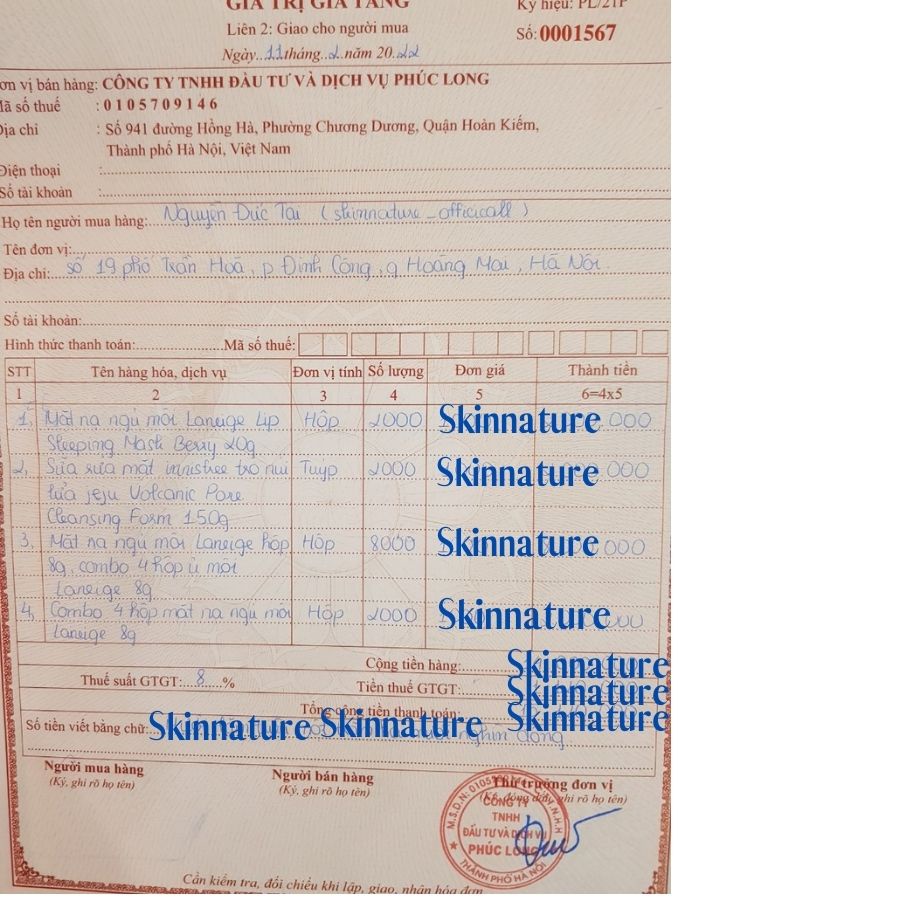 GIÁ TRỊ GIA TĂNG
Ký hiệu: PL/21P
Liên 2: Giao cho người mua
Số: 0001567
Ngày 11 tháng 2 năm 2022
ơn vị bán hàng: CÔNG TY TNHH ĐẦU TƯ VÀ DỊCH VỤ PHÚC LONG
Mã số thuế : 0105709146
Địa chỉ : Số 941 đường Hồng Hà, Phường Chương Dương, Quận Hoàn Kiếm,
Thành phố Hà Nội, Việt Nam
Điện thoại :
Số tài khoản :
Họ tên người mua hàng: Nguyễn Đức Tài (skinnature_officicall)
Tên đơn vị:
Địa chỉ: số 19 phố Trần Hoà, p Định Công, q Hoàng Mai, Hà Nội.
Số tài khoản:
Hình thức thanh toán: Mã số thuế:
STT Tên hàng hóa, dịch vụ Đơn vị tính Số lượng Đơn giá Thành tiền
1 2 3 4 5 6=4x5
1, Mặt nạ ngủ môi Laneige Lip Hộp 2000 Skinnature 000
Sleeping Mask Berry 20g
2, Sữa rửa mặt innisfree tro núi Tuýp 2000 Skinnature 000
lửa jeju Volcanic Pore
Cleansing Form 150g
3. Mặt nạ ngủ môi Laneige hộp Hộp 8000 Skinnature 000
8g, combo 4 hộp ủ môi
Laneige 8g
4, Combo 4 hộp mặt nạ ngủ môi Hộp 2000 Skinnature 000
Laneige 8g
Cộng tiền hàng: Skinnature
Thuế suất GTGT: 8 % Tiền thuế GTGT: Skinnature
Tổng cộng tiền thanh toán: Skinnature
Số tiền viết bằng chữ: Skinnature Skinnature nghìn đồng
Người mua hàng Người bán hàng Thủ trưởng đơn vị
(Ký, ghi rõ họ tên) (Ký, ghi rõ họ tên) (Ký, đóng dấu, ghi rõ họ tên)
CÔNG TY
TNHH
ĐẦU TƯ VÀ DỊCH VỤ
PHÚC LONG
THÀNH PHỐ HÀ NỘI
Cần kiểm tra, đối chiếu khi lập, giao, nhận hóa đơn